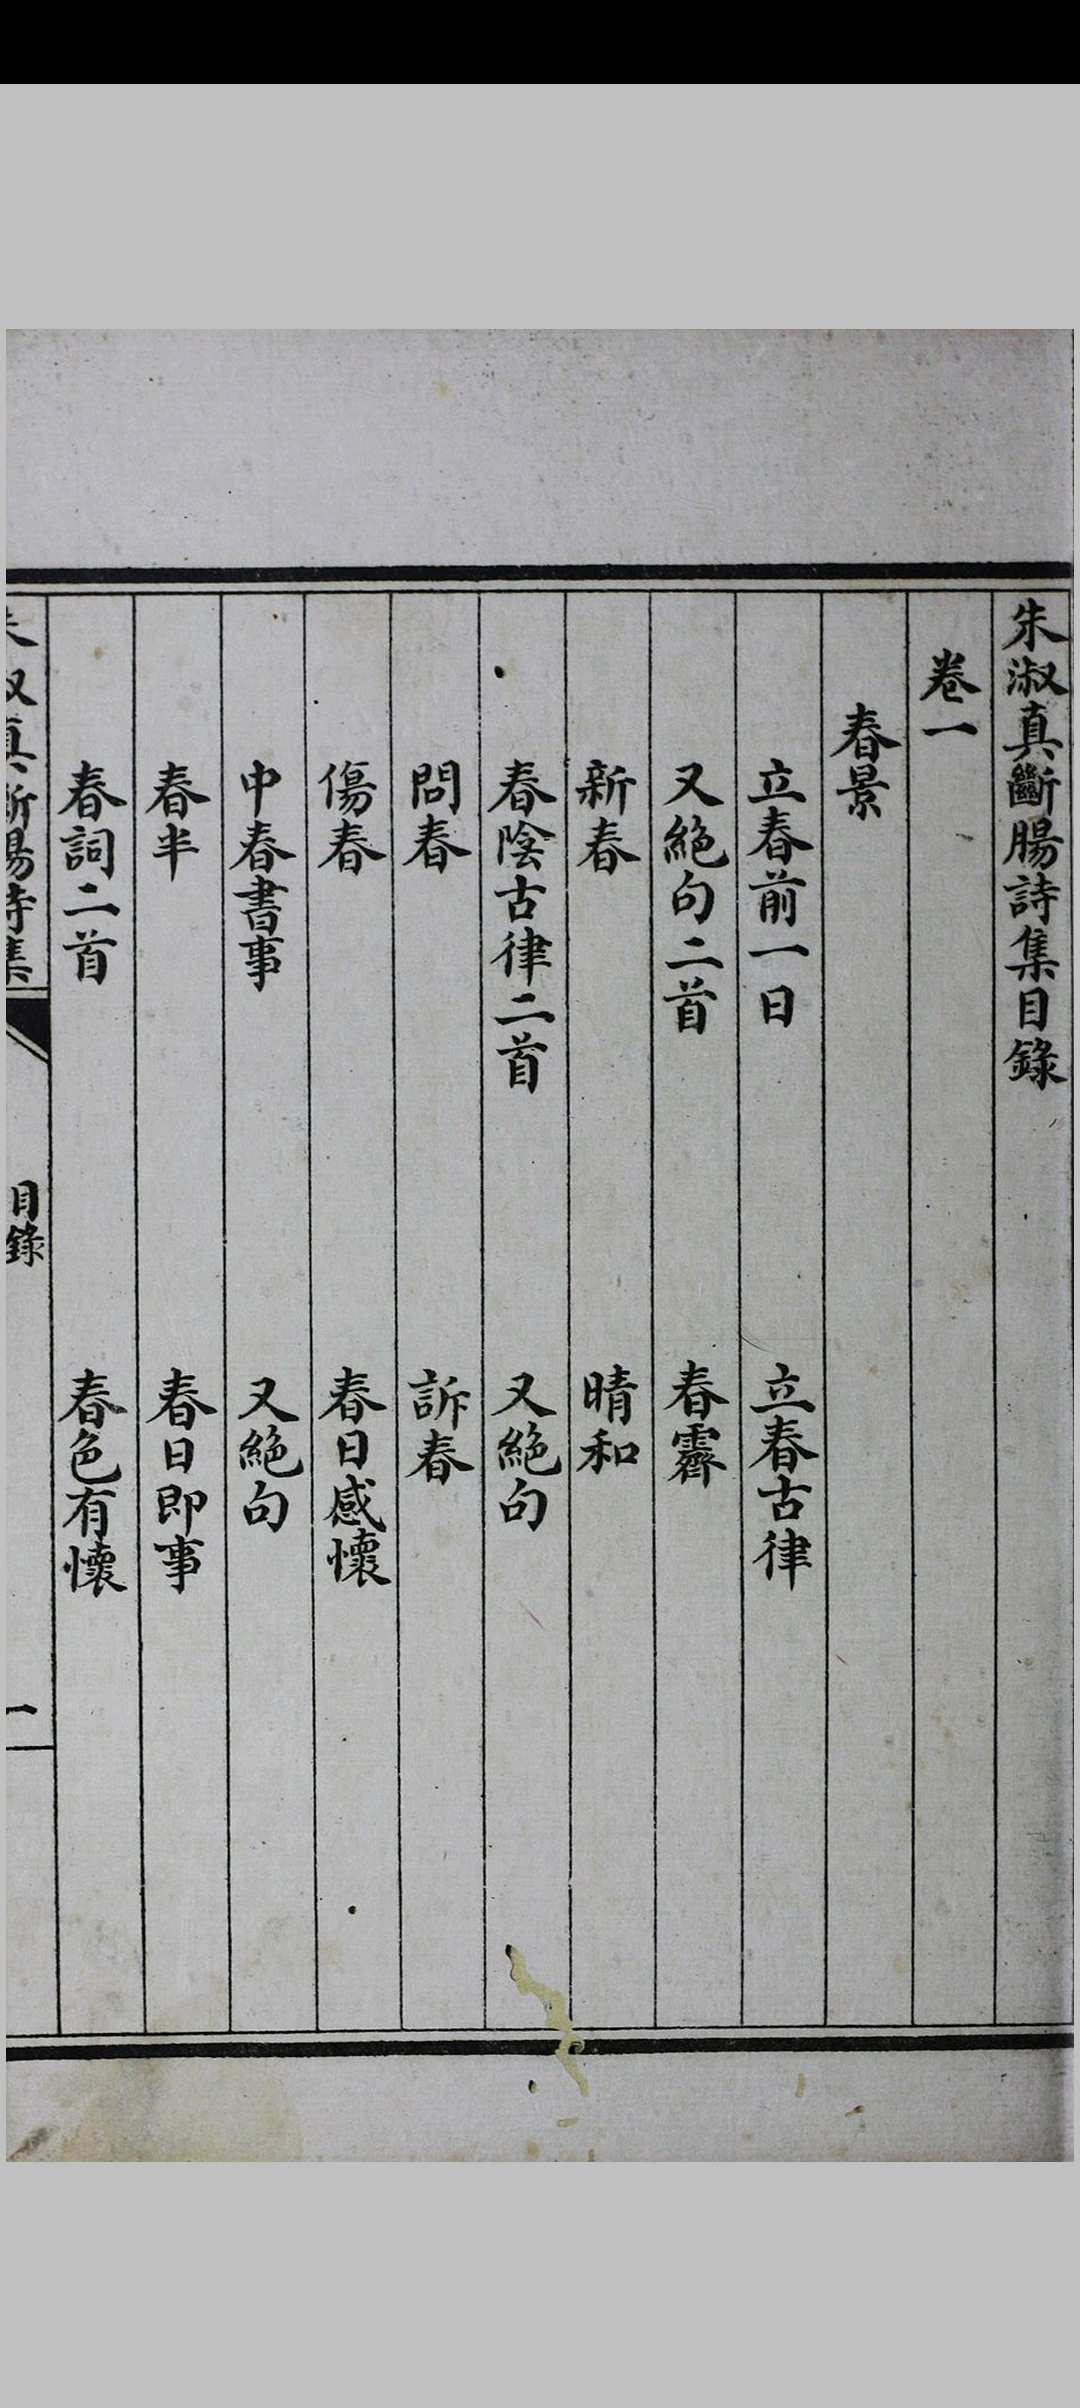 朱淑真斷腸詩集目錄
卷一
春景
立春前一日　立春古律
又絕句二首　春霽
新春　晴和
春陰古律二首　又絕句
問春　訴春
傷春　春日感懷
中春書事　又絕句
春半　春日即事
春詞二首　春色有懷
朱淑真斷腸詩集　目錄　一